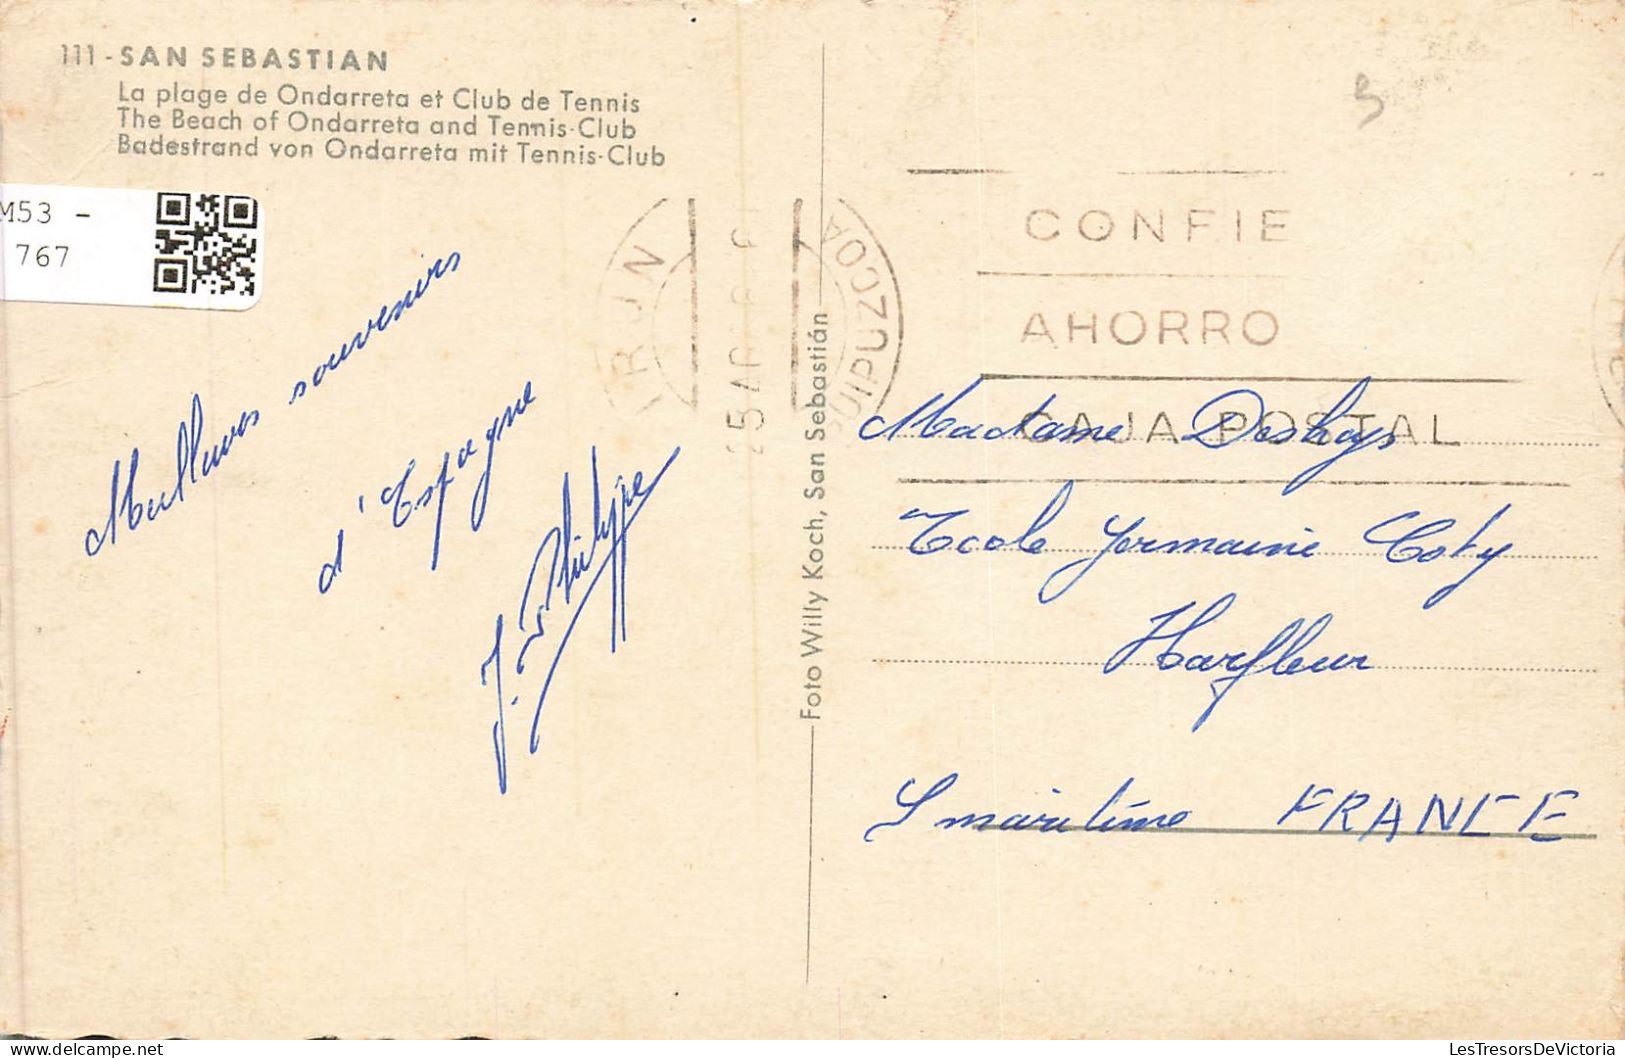 111 - SAN SEBASTIAN
La plage de Ondarreta et Club de Tennis
The Beach of Ondarreta and Tennis-Club
Badestrand von Ondarreta mit Tennis-Club
M53 -
767
Meilleurs souvenirs
d'Espagne
J. Philippe
Foto Willy Koch, San Sebastián
IRUN
GUIPUZCOA
CONFIE
AHORRO
CAJA POSTAL
Madame Deshays
Ecole Germaine Coty
Harfleur
S maritime FRANCE
LesTresorsDeVictoria